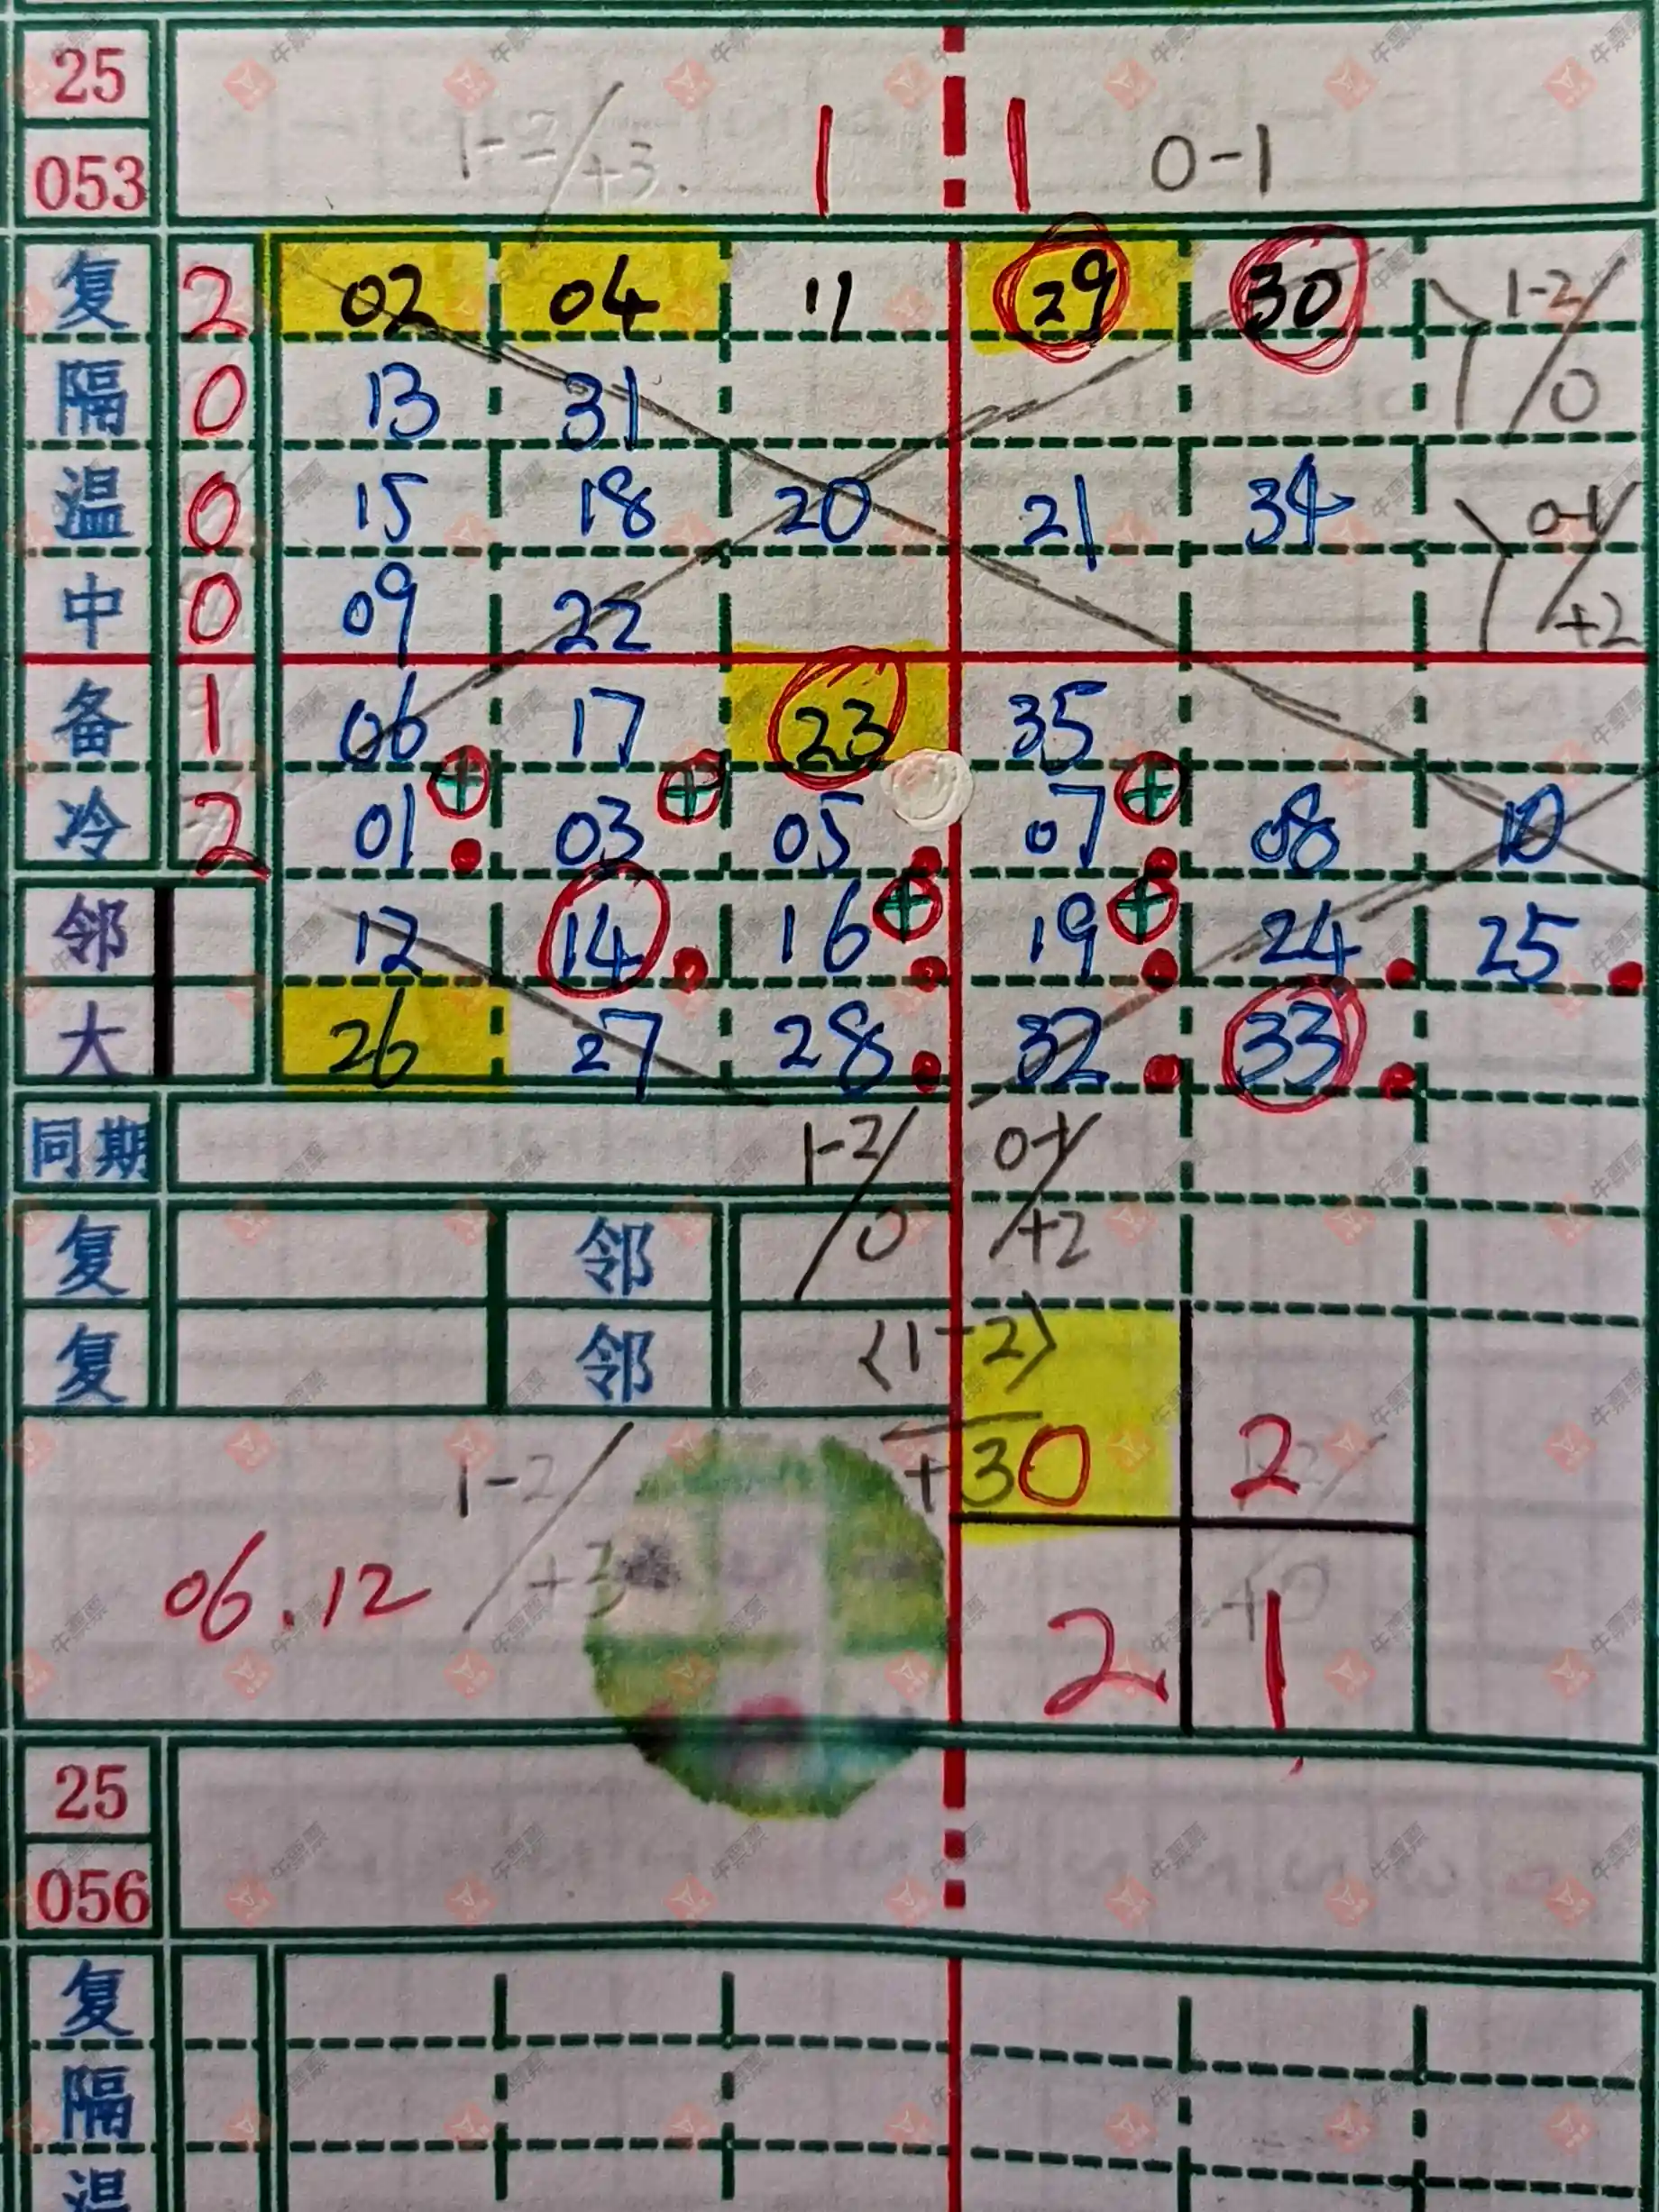 25
053 1-2/+3. 1 1 0-1
复 2 02 04 11 29 30 1-2/0
隔 0 13 31
温 0 15 18 20 21 34 0-1/+2
中 0 09 22
备 1 06 17 23 35
冷 2 01 03 05 07 08 10
邻 12 14 16 19 24 25
大 26 27 28 32 33
同期 1-2/0 0-1/+2
复 邻
复 邻 <1-2>
+3 0 2
1-2/+3
06.12 2 1
25
056
复
隔
温
牛票票